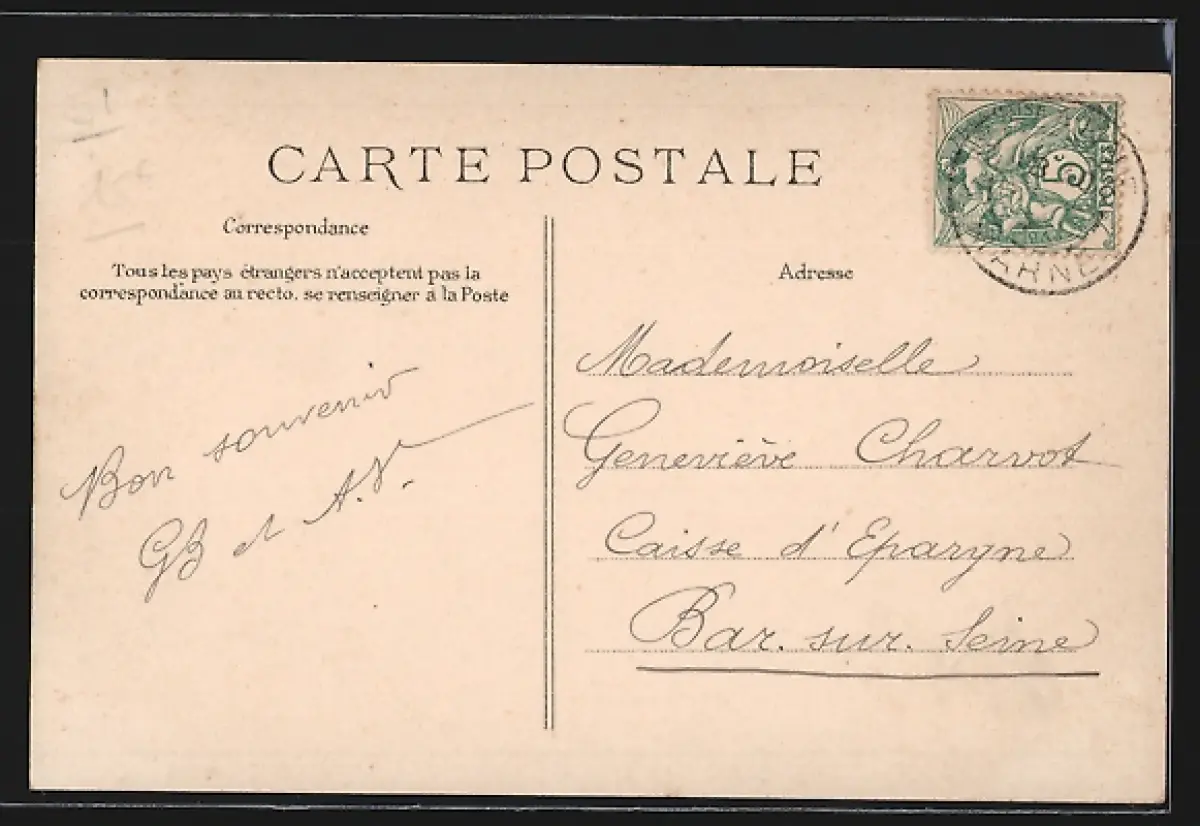 CARTE POSTALE
Correspondance
Tous les pays étrangers n'acceptent pas la
correspondance au recto, se renseigner à la Poste
Bon souvenir
GB et A.V.
Adresse
Mademoiselle
Geneviève Charvot
Caisse d'Epargne
Bar. sur. Seine
5c
POSTES
MARNE